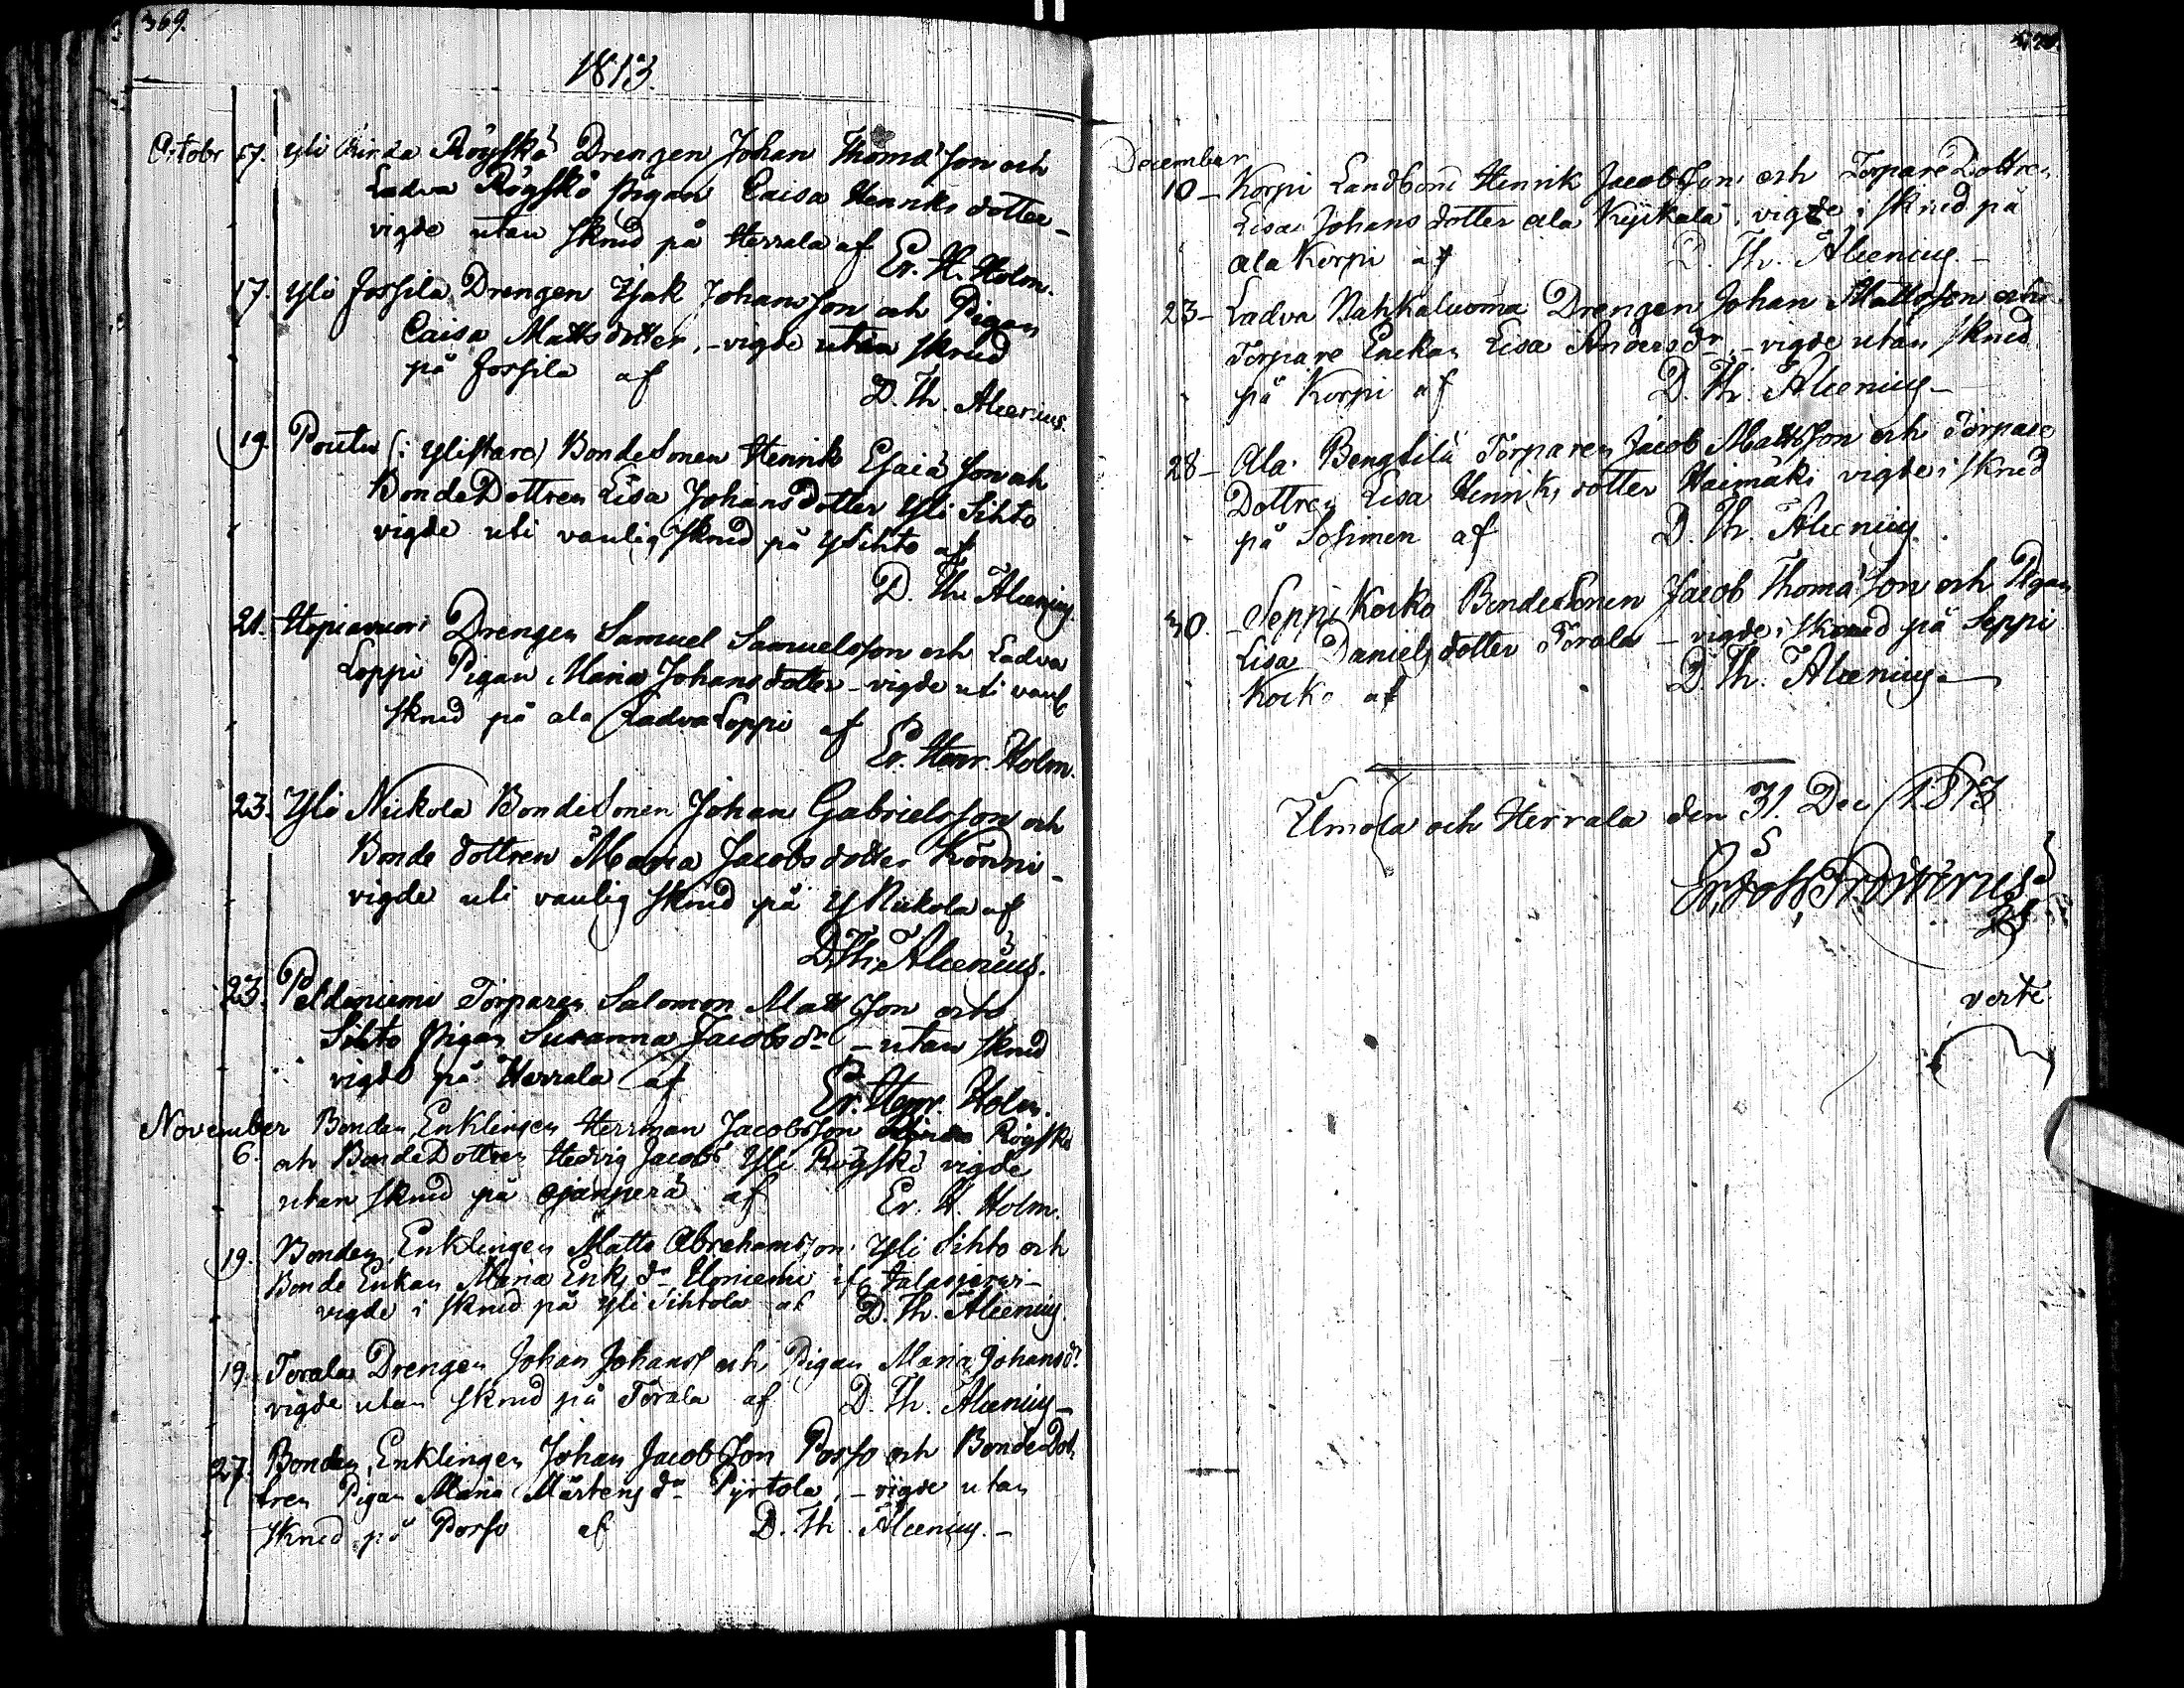 369.
1813.
Octobr 17. Yli Kinda Röyskö Drengen Johan Thomæson och
Ladva Röyskö Pigan Caisa Henriks dotter –
vigde utan skrud på Herrala af
Er. H. Holm.
17. Yli Jossila Drengen Isak Johansson och Pigan
Caisa Matts dotter, – vigde utan skrud
på Jossila af
D. Th. Alcenius.
19. Poutu (i Ylistaro) BondeSonen Henrik Esaiæ son och
BondeDottren Lisa Johans dotter Yli Sihto
vigde uti vanlig skrud på Y Sihto af
D. Th. Alcenius
21. Drengen Samuel Samuelsson och Ladva
Loppi Pigan Maria Johans dotter – vigde uti vanl
skrud på ala Ladva Loppi af
Er. Henr. Holm.
23. Yli Nickola BondeSonen Johan Gabrielsson och
Bonde dottren Maria Jacobs dotter Könni –
vigde uti vanlig skrud på Y Nickola af
D. Th. Alcenius.
23. Peldoniemi Torparen Salomon Mattsson och
Sihto Pigan Susanna Jacobs dr – utan skrud
vigde på Herrala af
Er. Henr. Holm.
November Bonden, Enklingen Herrman Jacobsson Röyskö
6. och BondeDottren Hedvig Jacobs Yli Röyskö vigde
utan skrud på Ojanperä af Er. H. Holm.
19. Bonden, Enklingen Matts Abrahamsson Yli Sihto och
Bonde Enkan Maria Eriks dr Iloniemi if Jalasjerwi –
vigde i skrud på Yli Sihtola af D. Th. Alcenius.
19. Torala Drengen Johan Johanss och Pigan Maria Johans dr
vigde utan skrud på Torala af D. Th. Alcenius –
27. Bonden, Enklingen Johan Jacobsson Porso och BondeDot
tren Pigan Maria Mårtens dr Pyrtola, – vigde utan
skrud på Porso af D. Th. Alcenius. –
December
10 – Korpi Landbond Henrik Jacobsson och TorpareDottren
Lisa Johans dotter ala Kyikalä, vigde i skrud på
ala Korpi af D. Th. Alcenius –
23 – Ladva Nahkaluoma Drengen Johan Mattsson och
Torpare Enckan Lisa Anders dr, – vigde utan skrud
på Korpi af D. Th. Alcenius –
28 – Ala Bengtilä Torparen Jacob Mattsson och Torpare
Dottren Lisa Henriks dotter Haimäki vigde i skrud
på Sosimen af D. Th. Alcenius.
30. – Seppi Kocko BondeSonen Jacob Thomæson och Pigan
Lisa Daniels dotter Torala – vigde i skrud på Seppi
Kocko af D. Th. Alcenius –
Ilmola och Herrala den 31. Dec 1813
verte